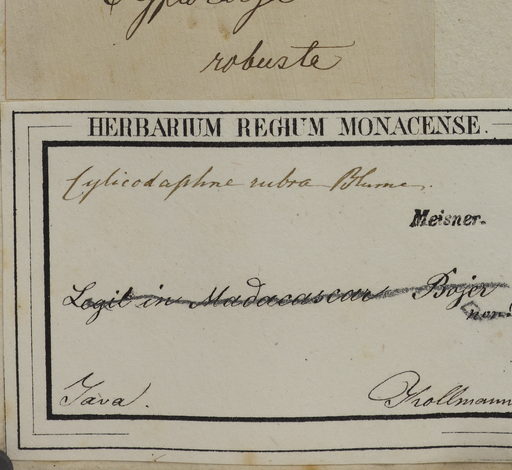 robuste
HERBARIUM REGIUM MONACENSE.
Cylicodaphne rubra Blume.
Meisner.
Legit in Madacascar Bojer
non!
Java. Kollmann